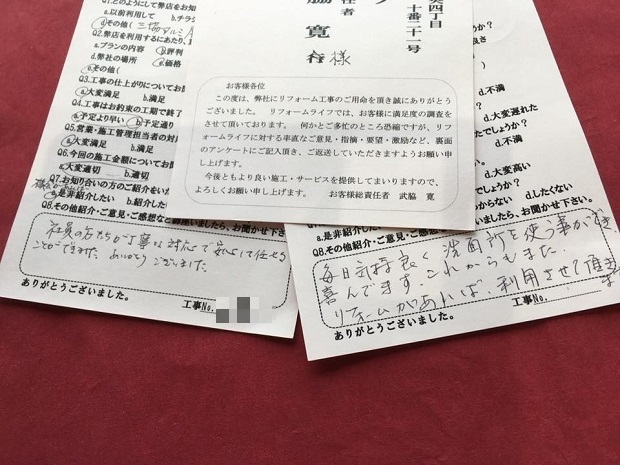 Q1.どのようにして弊店をお知
a.以前利用して b.チラシ
その他(
Q2.弊店を利用するにあたり、
a.プランの内容 b.評判
d.弊社の場所 e.価格
f.その他(
Q3.工事の仕上がりについてお聞
a.大変満足 b.満足
Q4.工事はお約束の工期で終了
a.予定より早い b.予定通り
Q5.営業・施工管理担当者の対
a.大変満足 b.満足
Q6.今回の施工金額についてお聞
a.大変適切 b.適切
Q7.お知り合いの方のご紹介をい
a.是非紹介したい b.紹介
Q8.その他紹介・ご意見・ご感想など御座いましたら、
社員の方たちが丁寧な対応で安心して任せる
ことができました。ありがとうございました。
ありがとうございました。
工事No.
四丁目
十番二十一号
任者
脇 寛 行 様
お客様各位
この度は、弊社にリフォーム工事のご用命を頂き誠にありがとう
ございました。 リフォームライフでは、お客様に満足度の調査を
させて頂いております。 何かとご多忙のところ恐縮ですが、リフ
ォームライフに対する率直なご意見・指摘・要望・激励など、裏面
のアンケートにご記入頂き、ご返送していただきますようお願い申
し上げます。
今後ともより良い施工・サービスを提供してまいりますので、
よろしくお願い申し上げます。 お客様総責任者 武脇 寛
しょうか?
d.不満
d.大変遅れた
でしょうか?
d.不満
d.大変高い
でしょうか?
a.是非紹介 d.したくない
Q8.その他紹介・ご意見・ご感想など御座いましたら、お聞かせ下さい。
毎日気持良く洗面所を使う事ができ
喜んでます。これからもまた、
リフォームがあれば、利用させて頂きます
ありがとうございました。
工事No.